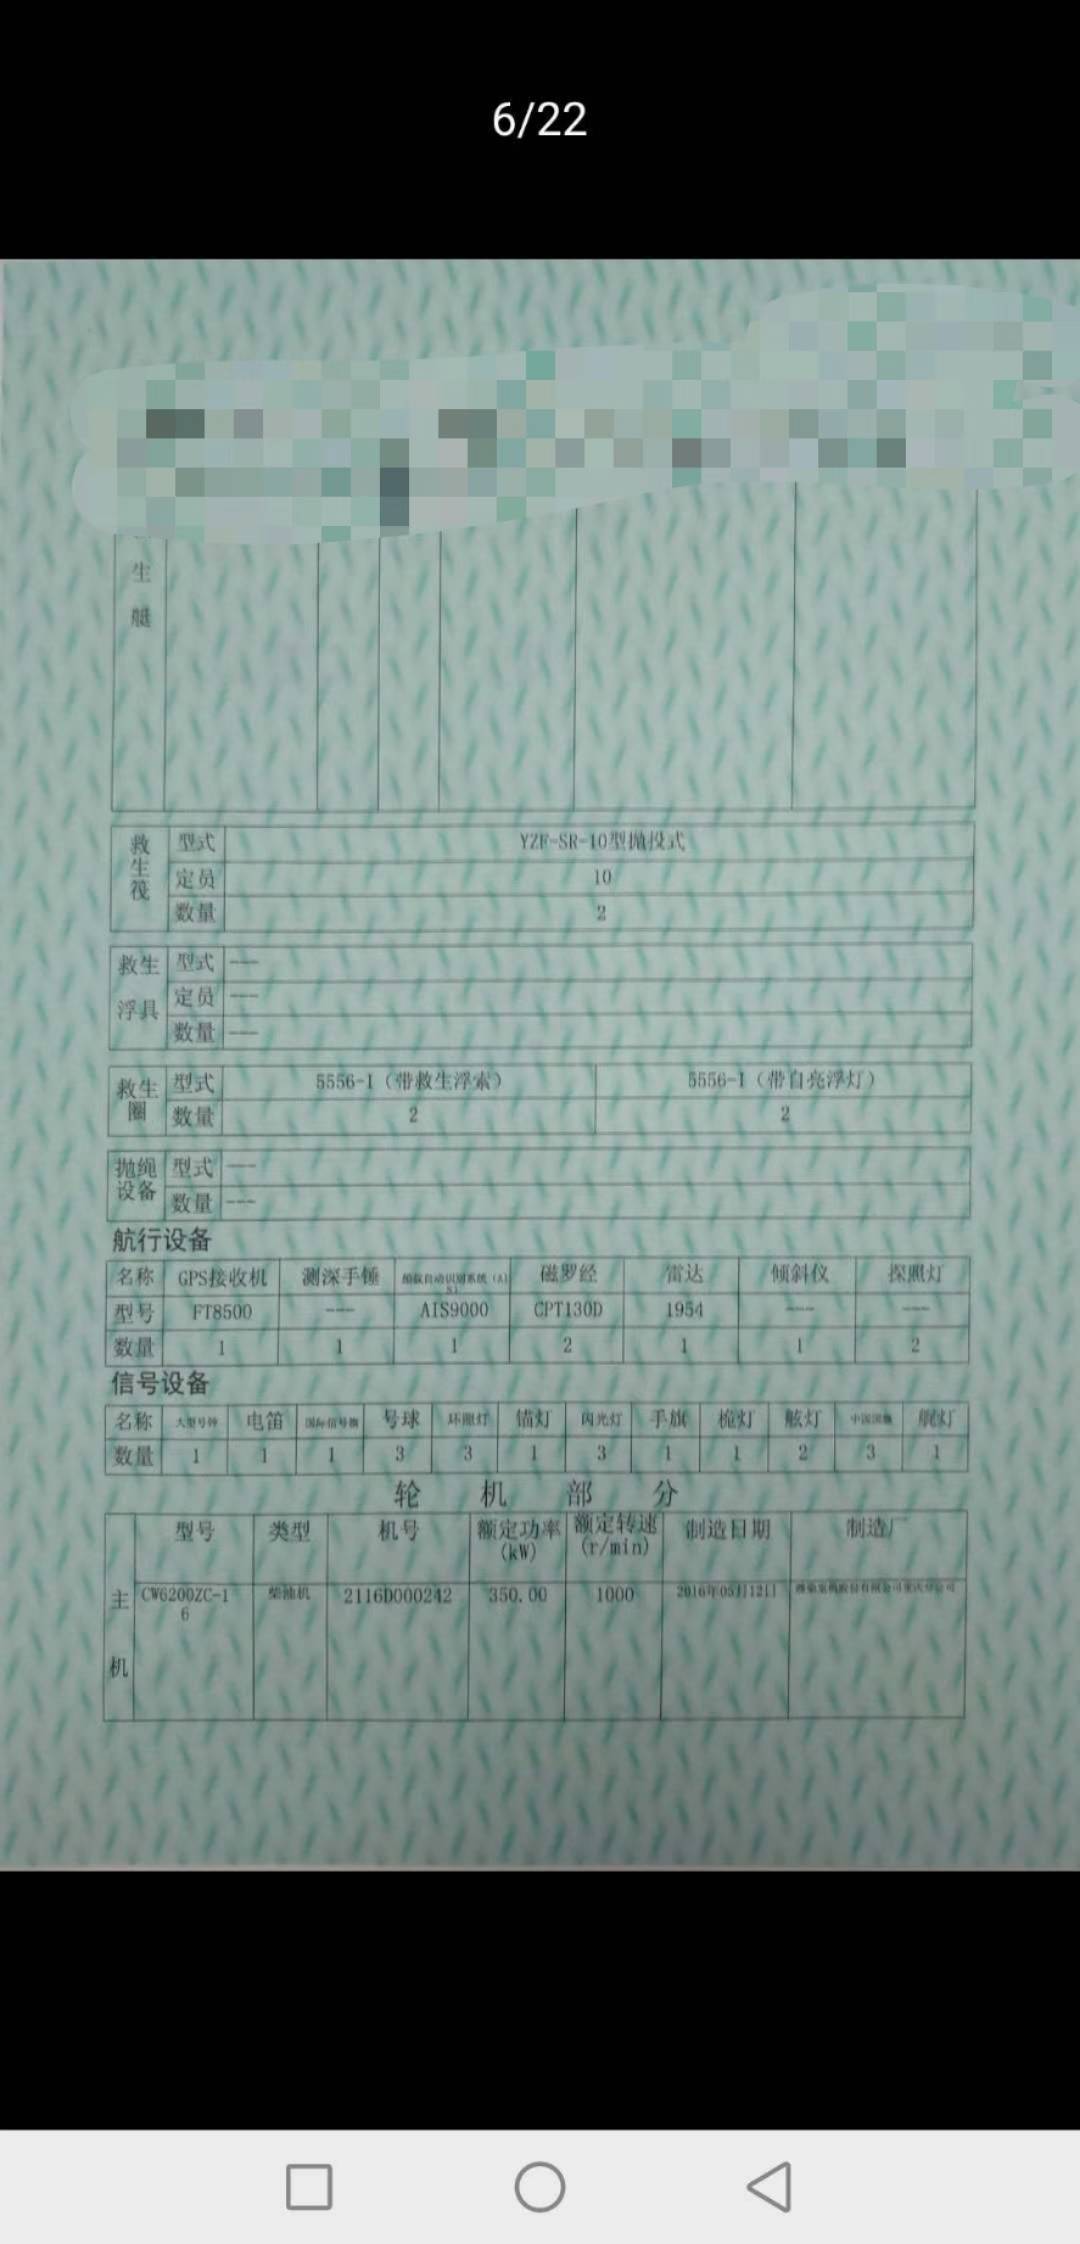 6/22
生
艇
救生筏 型式 YZF-SR-10型抛投式
定员 10
数量 2
救生浮具 型式 ---
定员 ---
数量 ---
救生圈 型式 5556-I（带救生浮索） 5556-I（带自亮浮灯）
数量 2 2
抛绳设备 型式 ---
数量 ---
航行设备
名称 GPS接收机 测深手锤 船载自动识别系统（AIS） 磁罗经 雷达 倾斜仪 探照灯
型号 FT8500 --- AIS9000 CPT130D 1954 --- ---
数量 1 1 1 2 1 1 2
信号设备
名称 大型号钟 电笛 国际信号旗 号球 环照灯 锚灯 闪光灯 手旗 桅灯 舷灯 中国国旗 艉灯
数量 1 1 1 3 3 1 3 1 1 2 3 1
轮机部分
型号 类型 机号 额定功率(kW) 额定转速(r/min) 制造日期 制造厂
主机 CW6200ZC-16 柴油机 2116D000242 350.00 1000 2016年05月12日